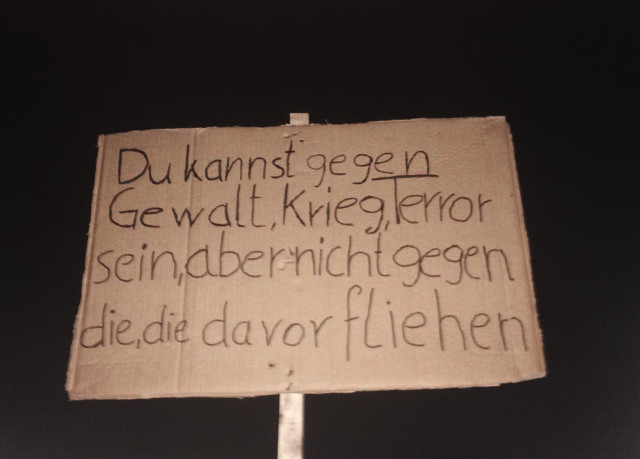 Du kannst gegen
Gewalt, Krieg, Terror
sein, aber nicht gegen
die, die davor fliehen